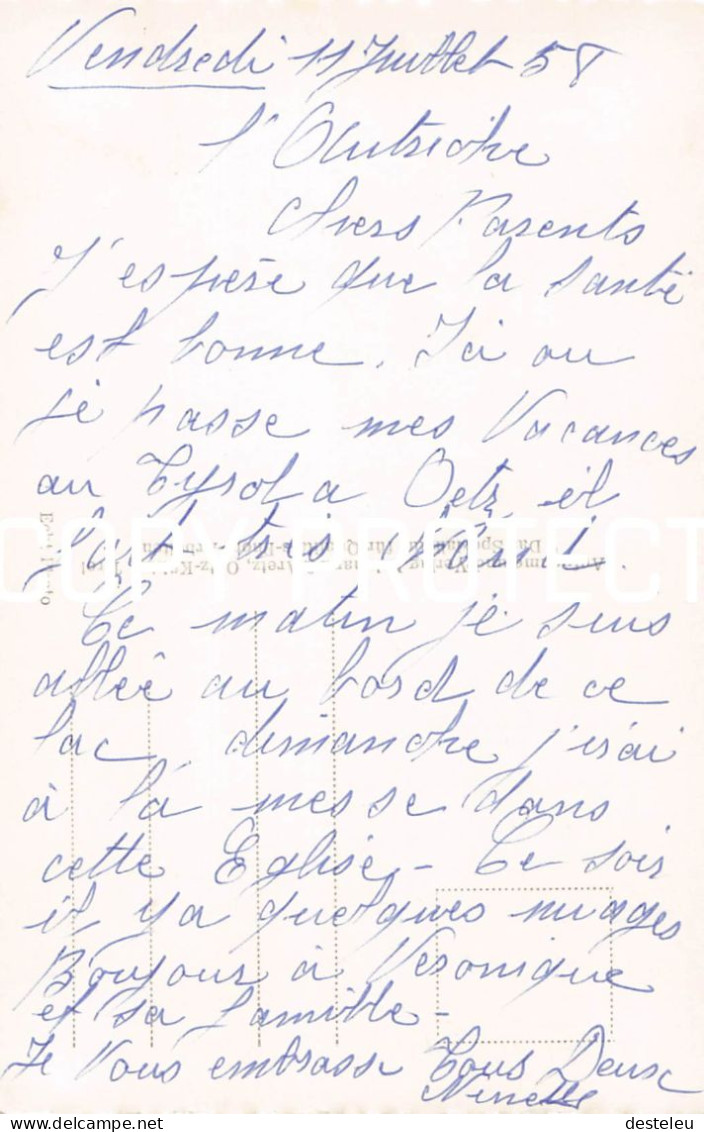 Vendredi 11 Juillet 58
l'Autriche
chers Parents
J'espère que la santé
est bonne. Ici ou
je passe mes Vacances
au Tyrol a Oetz, il
fait très
COPY PROTECT
Ce matin je suis
allée au bord de ce
lac, dimanche j'irai
à la messe dans
cette Eglise - Ce soir
il y a quelques nuages
Bonjour à Veronique
et sa famille -
Je Vous embrasse Tous Deux
Ninette
desteleu